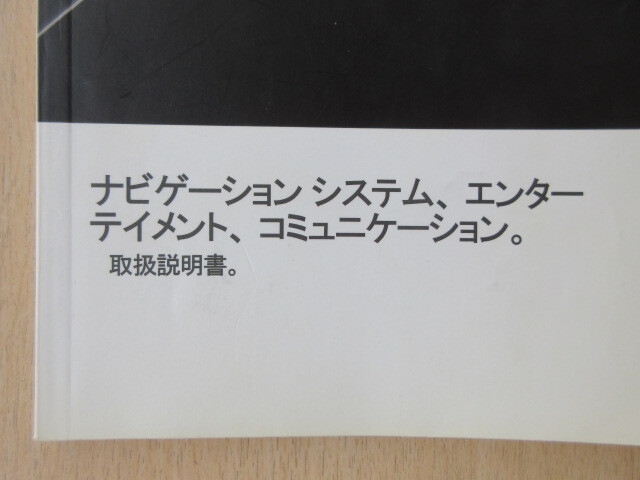 ナビゲーション システム、エンター
テイメント、コミュニケーション。
取扱説明書。